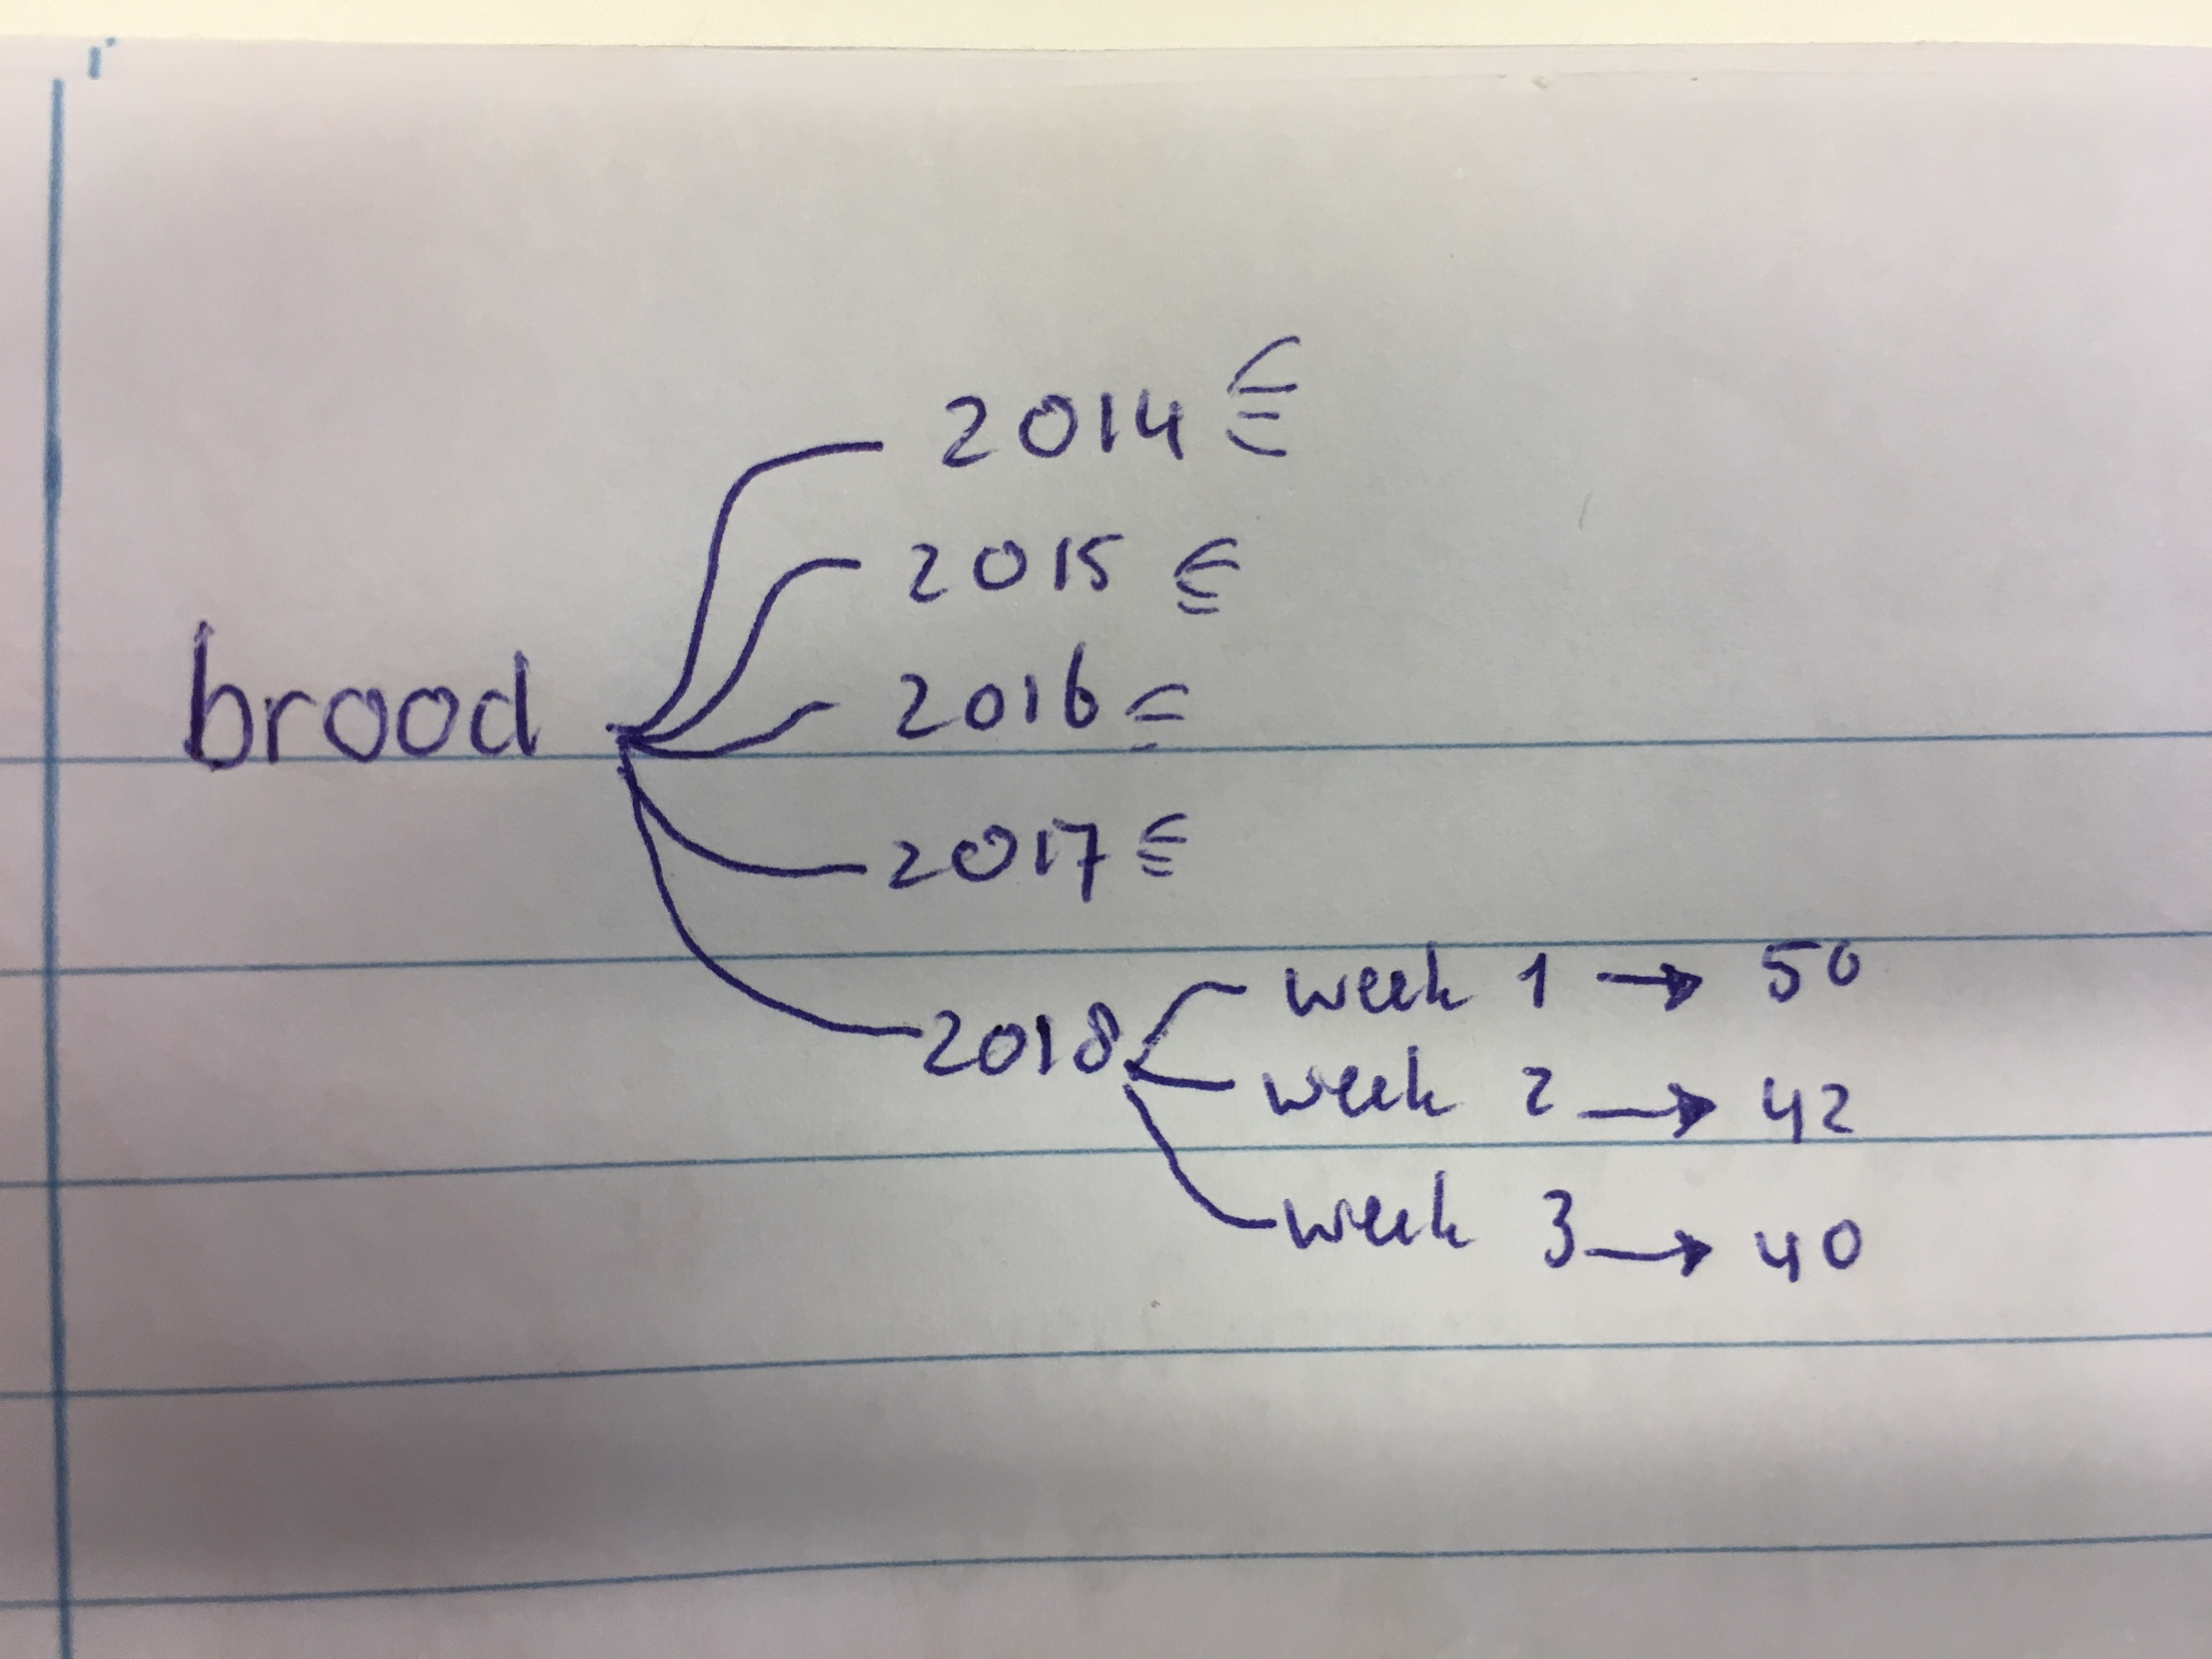 brood
2014
2015
2016
2017
2018
week 1 → 50
week 2 → 42
week 3 → 40